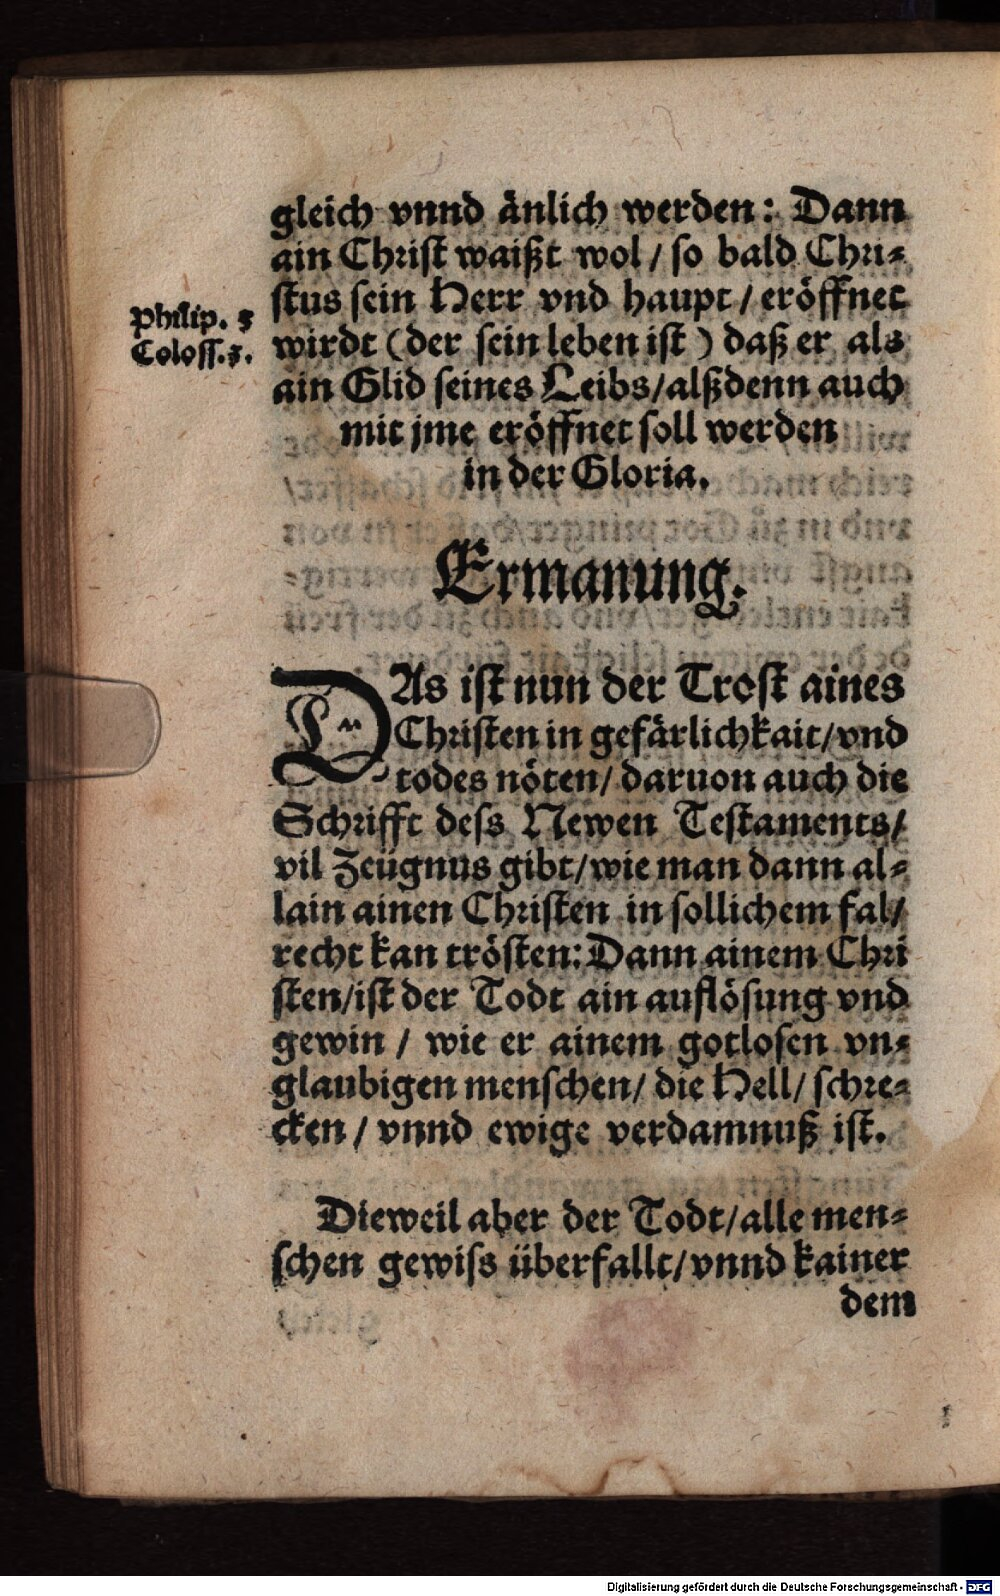 gleich vnnd änlich werden: Dann
ain Christ waißt wol / so bald Chri-
stus sein Herr vnd haupt / eröffnet
wirdt (der sein leben ist) daß er als
ain Glid seines Leibs/alßdenn auch
mit jme eröffnet soll werden
in der Gloria.
Philip. 3
Coloss. 3.
Ermanung.
DAs ist nun der Trost aines
Christen in gefärlichkait/vnd
todes nöten/ daruon auch die
Schrifft dess Newen Testaments/
vil Zeügnus gibt/wie man dann al-
lain ainen Christen in sollichem fal/
recht kan trösten: Dann ainem Chri
sten/ist der Todt ain auflösung vnd
gewin / wie er ainem gotlosen vn-
glaubigen menschen/ die Hell/ schre-
cken / vnnd ewige verdamnuß ist.
Dieweil aber der Todt/alle men-
schen gewiss überfallt/vnnd kainer
dem
Digitalisierung gefördert durch die Deutsche Forschungsgemeinschaft - DFG